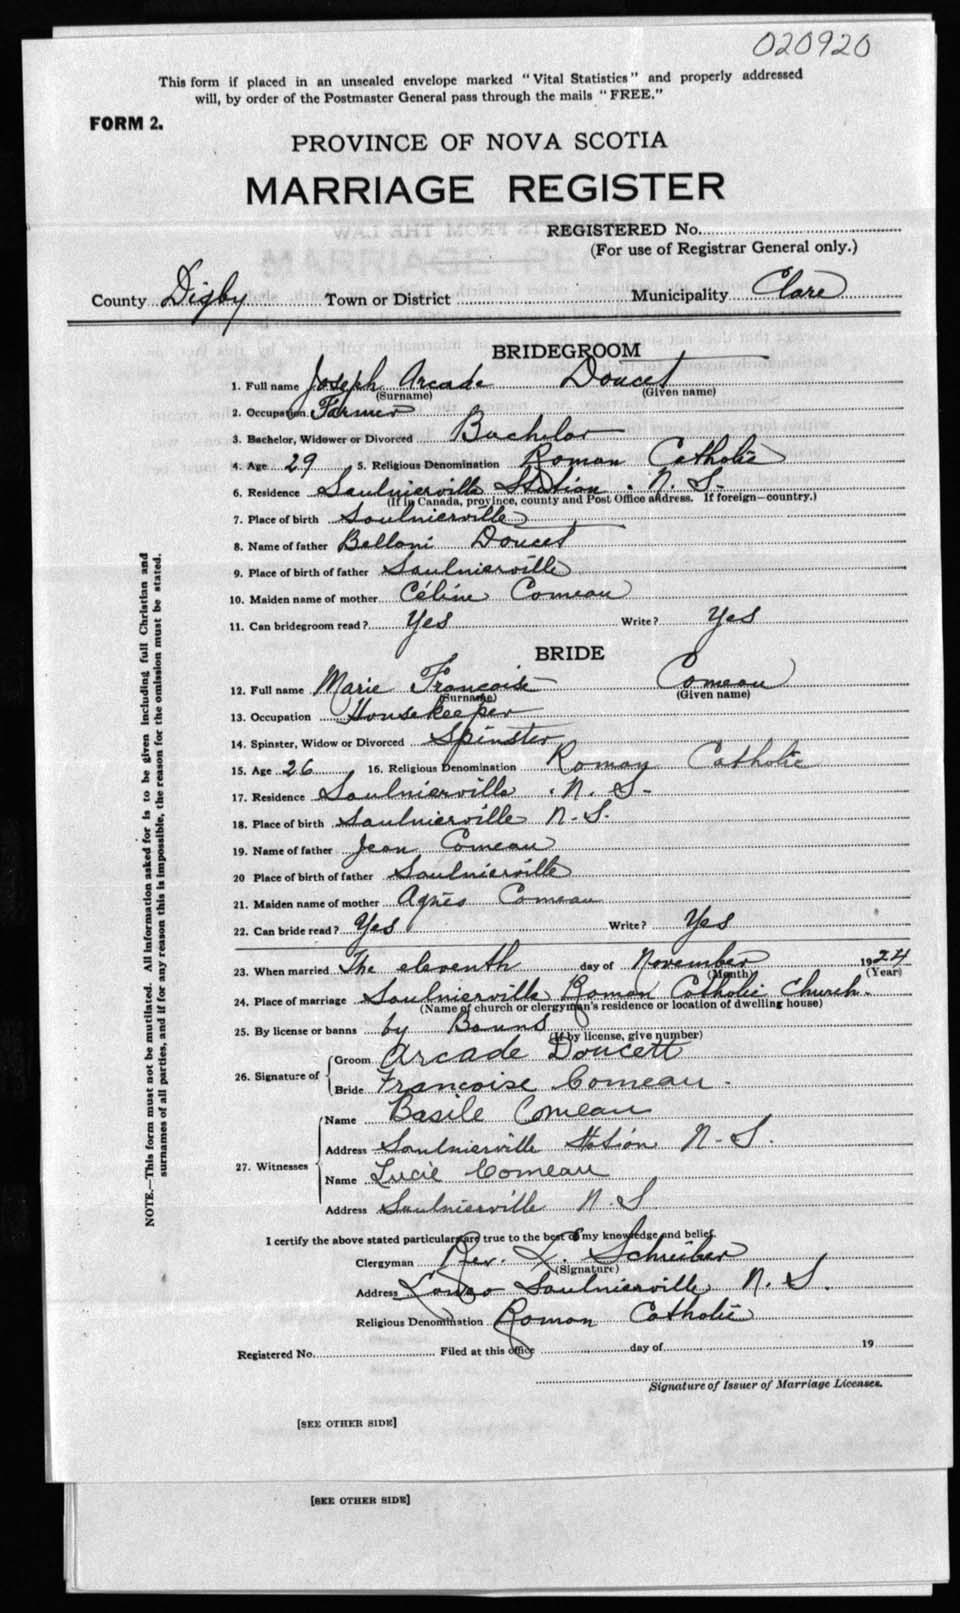 020920
This form if placed in an unsealed envelope marked "Vital Statistics" and properly addressed
will, by order of the Postmaster General pass through the mails "FREE."
FORM 2.
PROVINCE OF NOVA SCOTIA
MARRIAGE REGISTER
REGISTERED No.
(For use of Registrar General only.)
County Digby Town or District Municipality Clare
BRIDEGROOM
1. Full name Joseph Arcade Doucet
(Surname) (Given name)
2. Occupation Farmer
3. Bachelor, Widower or Divorced Bachelor
4. Age 29 5. Religious Denomination Roman Catholic
6. Residence Saulnierville Station . N. S.
(If in Canada, province, county and Post Office address. If foreign—country.)
7. Place of birth Saulnierville
8. Name of father Belloni Doucet
9. Place of birth of father Saulnierville
10. Maiden name of mother Céline Comeau
11. Can bridegroom read? Yes Write? Yes
BRIDE
12. Full name Marie Françoise Comeau
(Surname) (Given name)
13. Occupation Housekeeper
14. Spinster, Widow or Divorced Spinster
15. Age 26 16. Religious Denomination Roman Catholic
17. Residence Saulnierville . N. S.
18. Place of birth Saulnierville N. S.
19. Name of father Jean Comeau
20 Place of birth of father Saulnierville
21. Maiden name of mother Agnès Comeau
22. Can bride read? Yes Write? Yes
23. When married The eleventh day of November 1924
(Month) (Year)
24. Place of marriage Saulnierville Roman Catholic Church.
(Name of church or clergyman's residence or location of dwelling house)
25. By license or banns by Banns
(If by license, give number)
26. Signature of Groom Arcade Doucett
Bride Francoise Comeau.
27. Witnesses Name Basile Comeau
Address Saulnierville Station N. S.
Name Lucie Comeau
Address Saulnierville N. S
I certify the above stated particulars are true to the best of my knowledge and belief.
Clergyman Rev. Schreiber
(Signature)
Address Saulnierville N. S.
Religious Denomination Roman Catholic
Registered No. Filed at this office day of 19
Signature of Issuer of Marriage Licenses.
[SEE OTHER SIDE]
[SEE OTHER SIDE]
NOTE.—This form must not be mutilated. All information asked for is to be given including full Christian and
surnames of all parties, and if for any reason this is impossible, the reason for the omission must be stated.